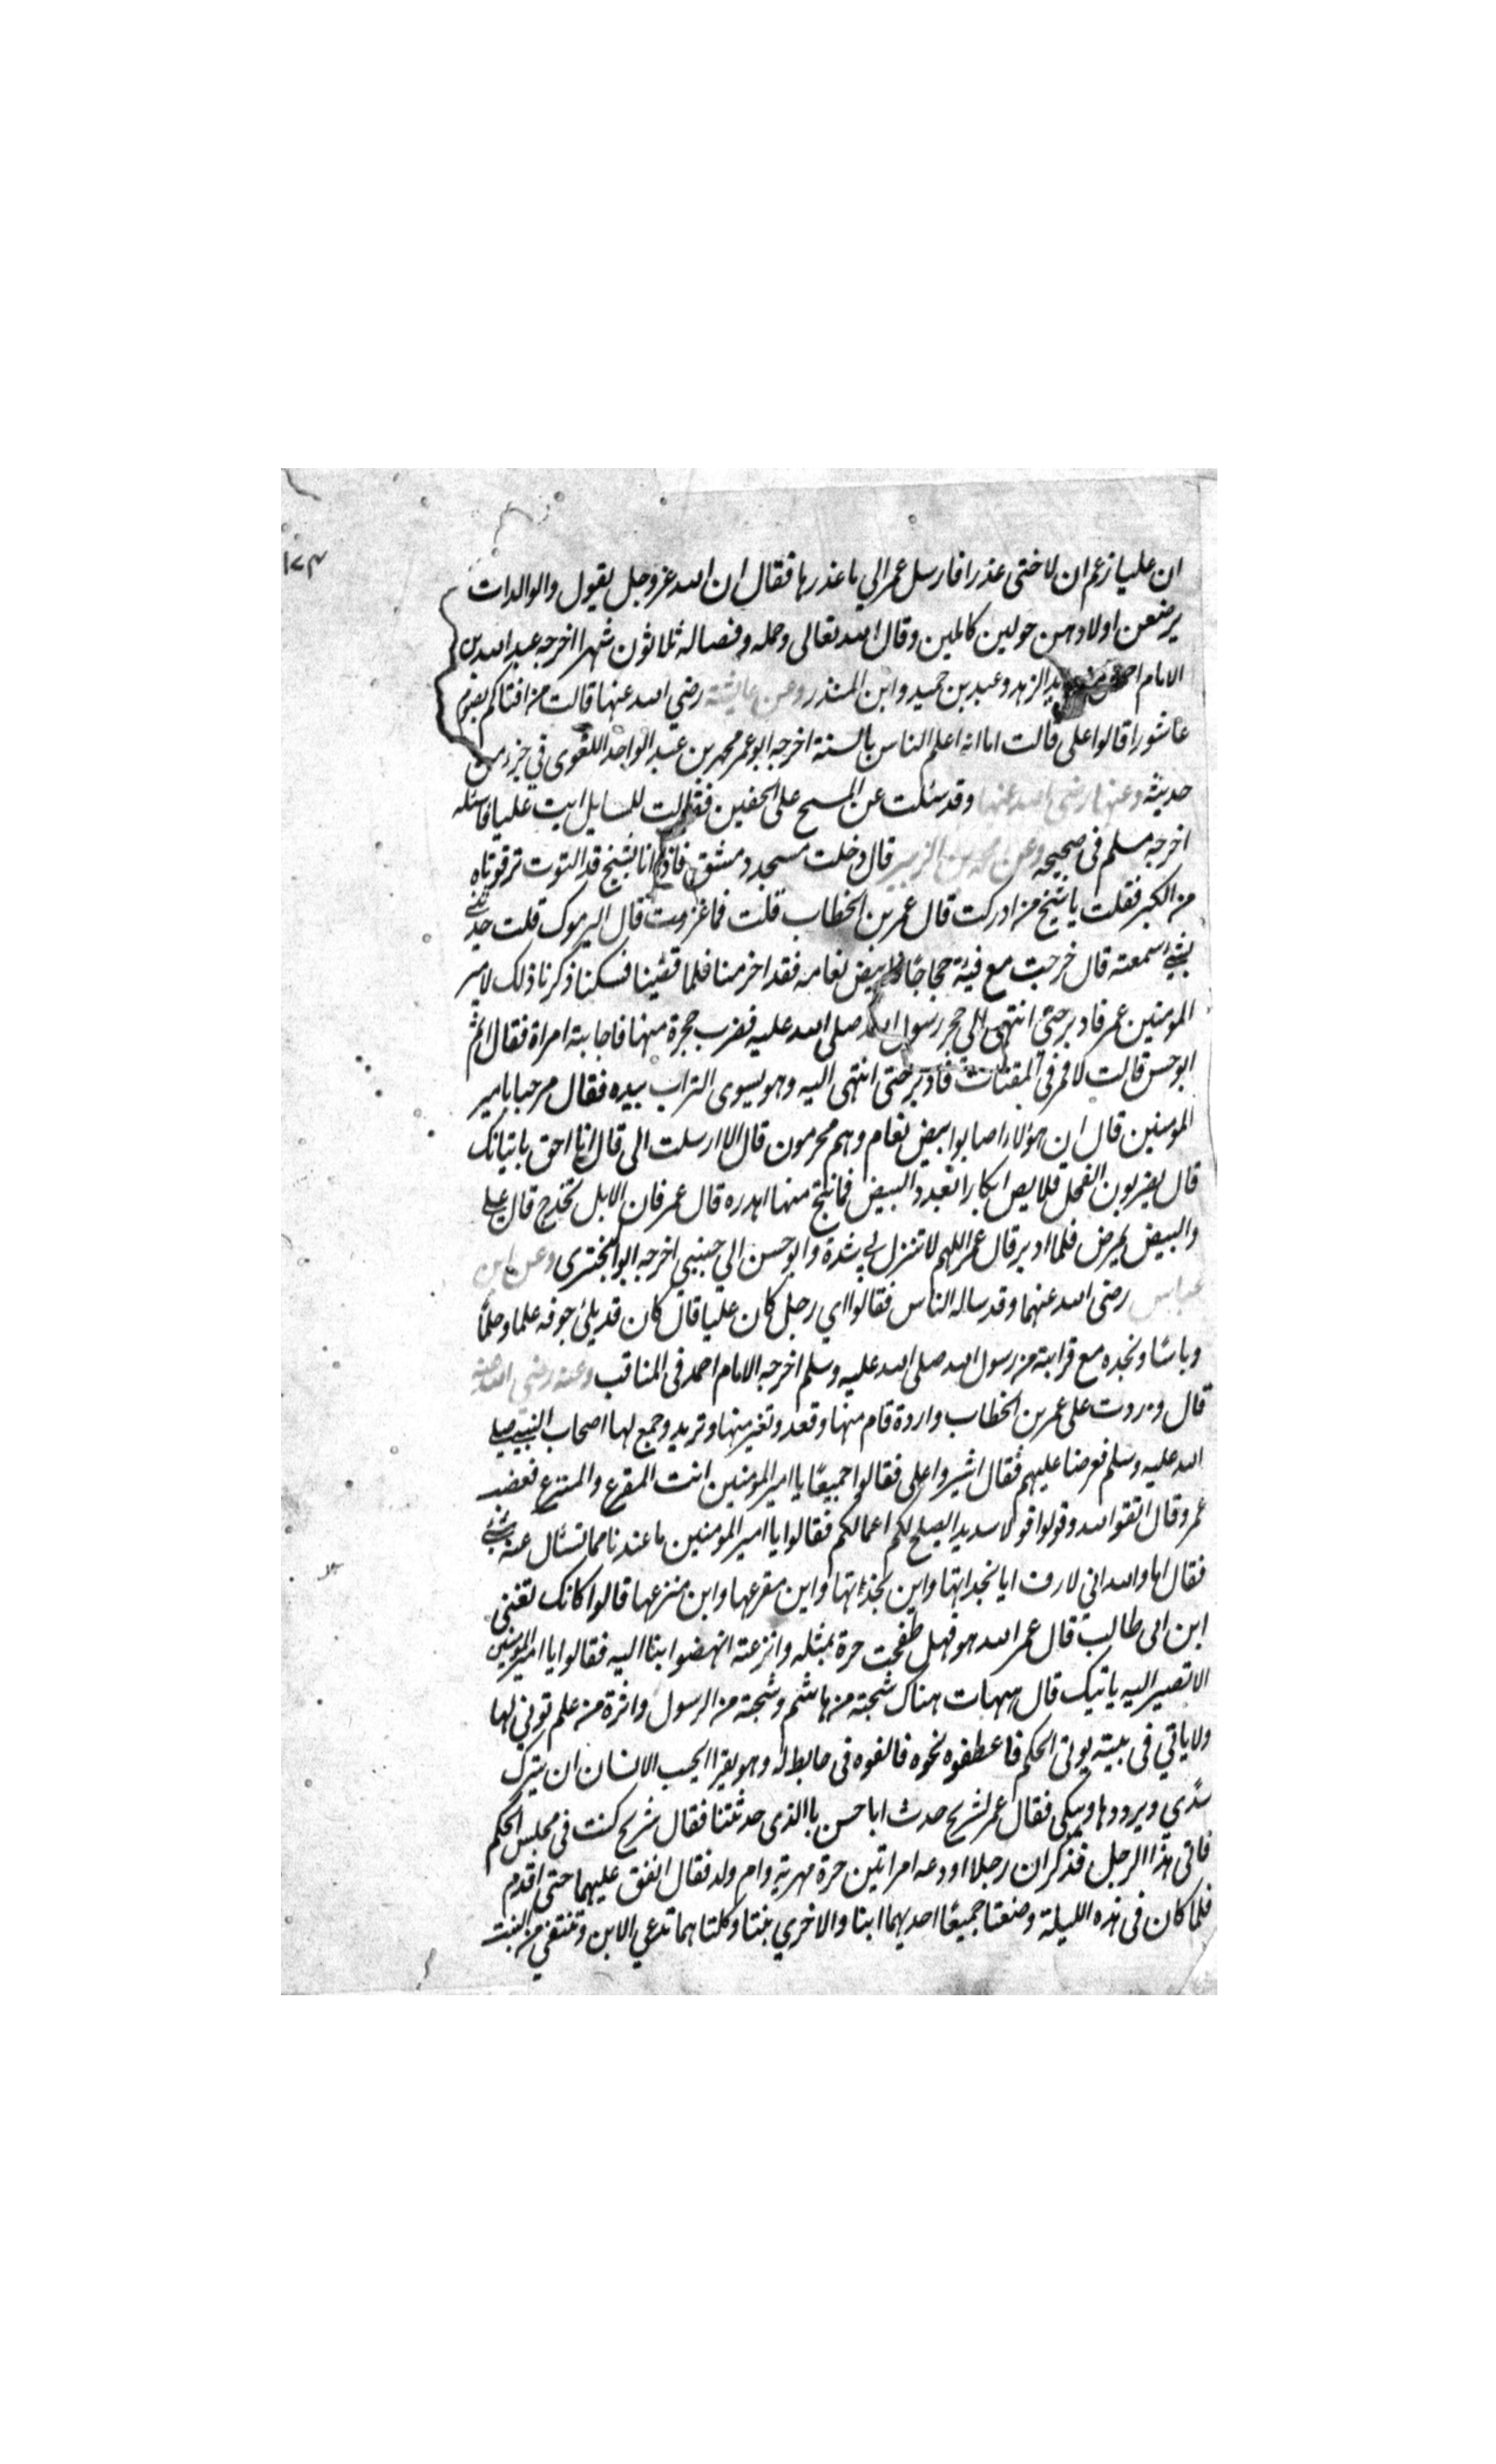 ١٧٣
ان عليا زعم ان لاختى عذرا فارسل عمر الي ما عذرها فقال ان الله عز وجل يقول والوالدات
يرضعن اولادهن حولين كاملين وقال الله تعالى وحمله وفصاله ثلاثون شهرا اخرجه عبد الله بن
الامام احمد الزهد وعبد بن حميد وابن المنذر وعن عايشة رضي الله عنها قالت من افتاكم بصوم
عاشورا قالوا على قالت اما انه اعلم الناس بالسنة اخرجه ابو عمر محمد بن عبد الواحد اللغوى في جزء من
حديثه وعنها رضي الله عنها وقد سئلت عن المسح على الخفين فقالت للسايل ايت عليا فاسئله
اخرجه مسلم فى صحيحه وعن محمد بن الزبير قال دخلت مسجد دمشق فاذا انا بشيخ قد التوت ترقوتاه
من الكبر فقلت يا شيخ من ادركت قال عمر بن الخطاب قلت فما غزوت قال اليرموك قلت حدثني
بشيء سمعته قال خرجت مع فية حجاجا بيض نعامه فقد اخرمنا فلما قضينا نسكنا ذكرنا ذلك لامير
المومنين عمر فادبر حتى انتهى الى حجر رسول الله صلى الله عليه فضرب حجرة منها فاجابته امراة فقال اثم
ابو حسن قالت لا فمر في المقتات فادبر حتى انتهى اليه وهو يسوى التراب بيده فقال مرحبا بامير
المومنين قال ان هؤلاء اصابوا بيض نعام وهم محرمون قال الا ارسلت الى قال انا احق باتيانك
قال يضربون الفحل قلايص ابكارا بعدد البيض فما نتج منها اهدره قال عمر فان الابل تخدج قال على
والبيض يمرض فلما ادبر قال عمر اللهم لا تنزل بي شدة وابو حسن الي جنبي اخرجه ابو البخترى وعن ابن
عباس رضى الله عنهما وقد ساله الناس فقالوا اي رجل كان عليا قال كان قد ملئ جوفه علما وحلما
وباسا ونجده مع قرابته من رسول الله صلى الله عليه وسلم اخرجه الامام احمد فى المناقب وعنه رضي الله عنه
قال وردت على عمر بن الخطاب واردة قام منها وقعد وتغير منها وتربد وجمع لها اصحاب النبي صلى
الله عليه وسلم فعرضنا عليهم فقال اشيروا على فقالوا جميعا يا امير المومنين انت المفزع والمنزع فغضب
عمر وقال اتقوا الله وقولوا قولا سديدا يصلح لكم اعمالكم فقالوا يا امير المومنين ما عندنا مما تسئال عنه شي
فقال اما والله اني لارف ابا نجدانها واين بجذانها واين مفزعها واين منزعها قالوا كانك تعني
ابن ابى طالب قال عمر الله هو فهل طفحت حرة بمثله وانزعته انهضوا بنا اليه فقالوا يا امير المومنين
الا تصير اليه ياتيك قال هيهات هناك شجنة من هاشم وشجنة من الرسول واثرة من علم توتي لها
ولا ياتي فى بيته يوتى الحكم فاعطفوه نحوه فالفوه فى حايط له وهو يقرا ايحسب الانسان ان يترك
سدي ويرددها ويبكى فقال عمر لشريح حدث ابا حسن بالذى حدثتنا فقال شريح كنت فى مجلس الحكم
فاتى هذا الرجل فذكر ان رجلا اودعه امراتين حرة مهرية وام ولد فقال انفق عليهما حتى اقدم
فلما كان فى هذه الليلة وضعتا جميعا احديهما ابنا والاخري بنتا وكلتاهما تدعي الابن وتنتفي من البنت